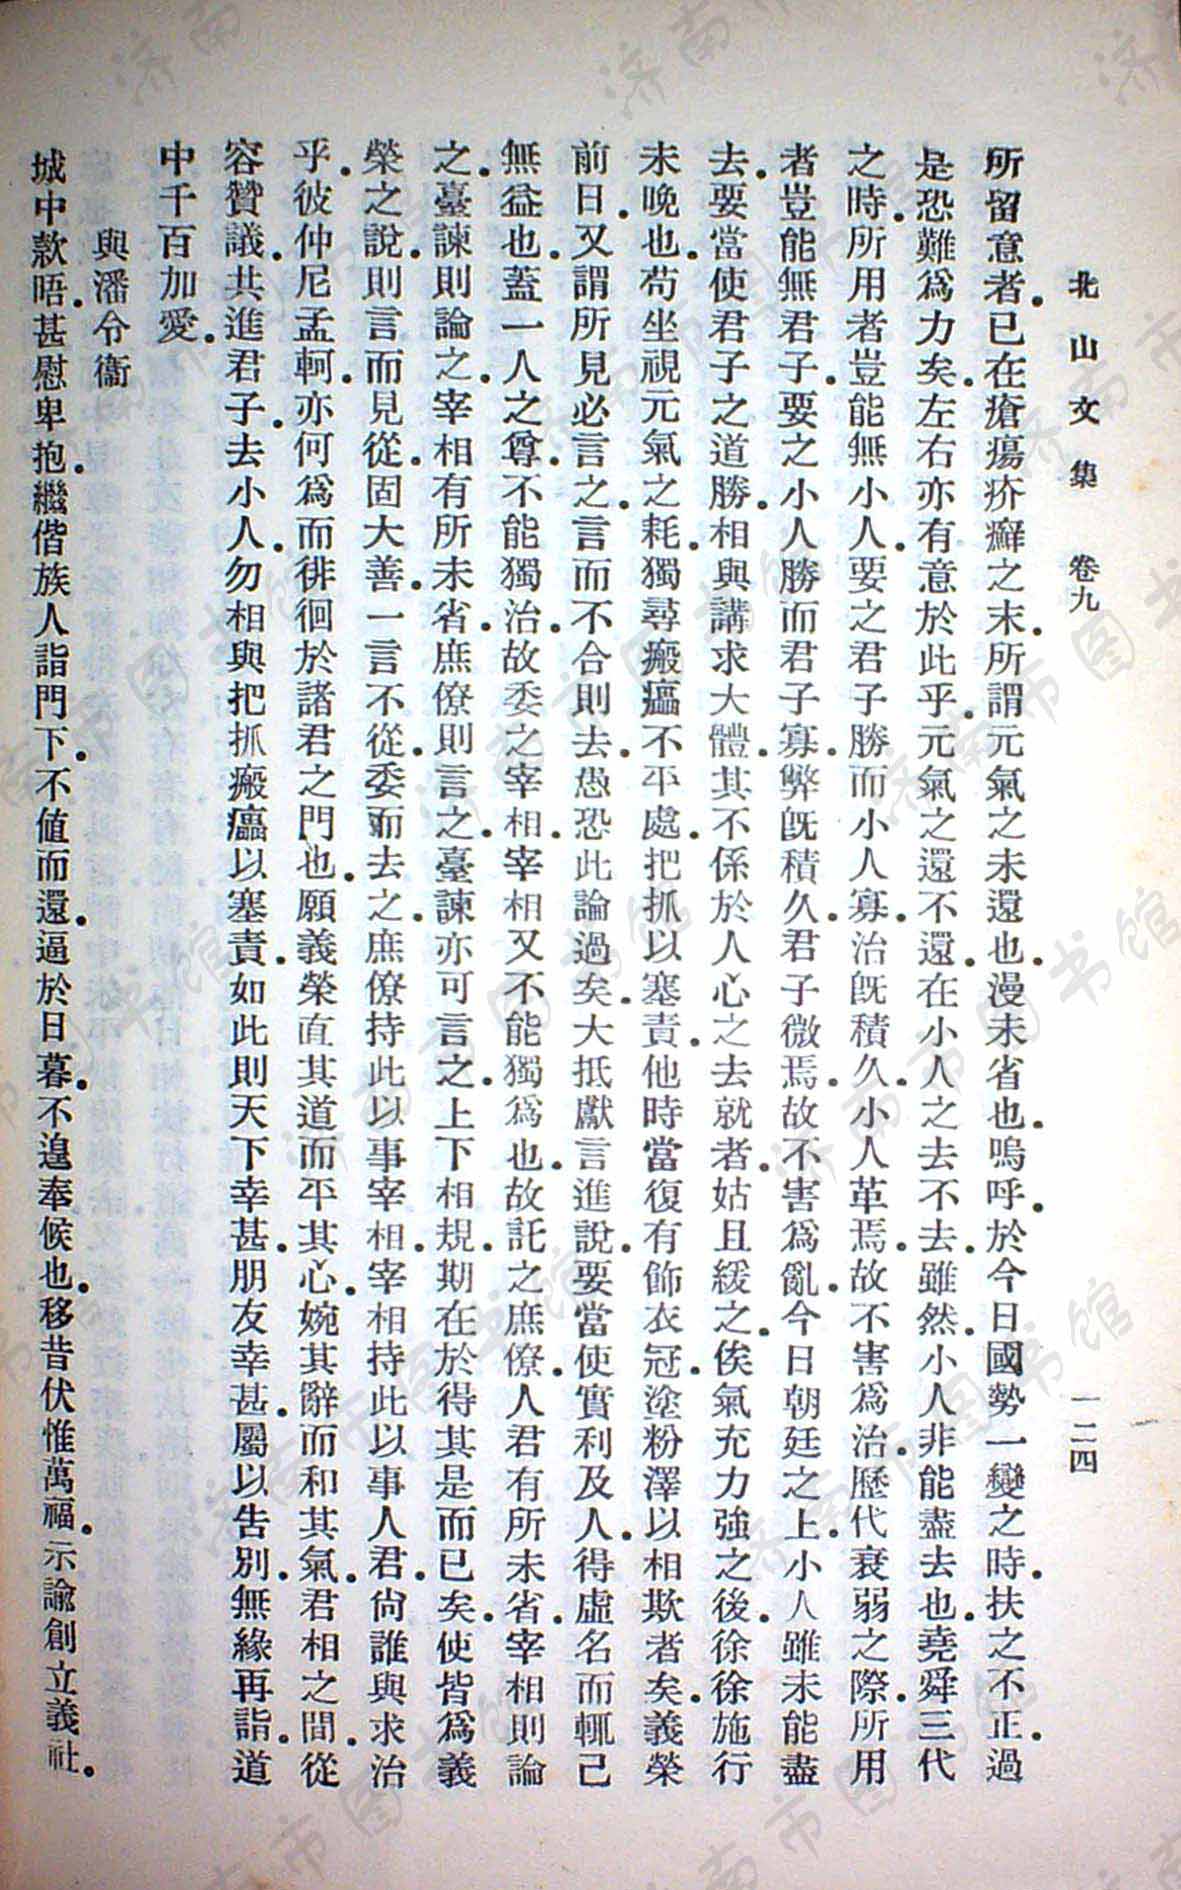 北山文集 卷九 一二四
所留意者.已在瘡瘍疥癬之末.所謂元氣之未還也.漫未省也.嗚呼.於今日國勢一變之時.扶之不正.過
是恐難爲力矣.左右亦有意於此乎.元氣之還不還.在小人之去不去.雖然.小人非能盡去也.堯舜三代
之時.所用者豈能無小人.要之君子勝而小人寡.治旣積久.小人革焉.故不害爲治.歷代衰弱之際.所用
者豈能無君子.要之小人勝而君子寡.弊旣積久.君子微焉.故不害爲亂.今日朝廷之上.小人雖未能盡
去.要當使君子之道勝.相與講求大體.其不係於人心之去就者.姑且緩之.俟氣充力強之後.徐徐施行
未晚也.苟坐視元氣之耗.獨尋瘢㾦不平處.把抓以塞責.他時當復有飾衣冠.塗粉澤.以相欺者矣.義榮
前日.又謂所見必言之.言而不合則去.愚恐此論過矣.大抵獻言進說.要當使實利及人.得虛名而輒己
無益也.蓋一人之尊.不能獨治.故委之宰相.宰相又不能獨爲也.故託之庶僚.人君有所未省.宰相則論
之.臺諫則論之.宰相有所未省.庶僚則言之.臺諫亦可言之.上下相規.期在於得其是而已矣.使皆爲義
榮之說.則言而見從.固大善.一言不從.委而去之.庶僚持此以事宰相.宰相持此以事人君.尙誰與求治
乎.彼仲尼孟軻.亦何爲而徘徊於諸君之門也.願義榮直其道而平其心.婉其辭而和其氣.君相之間.從
容贊議.共進君子.去小人.勿相與把抓瘢㾦以塞責.如此則天下幸甚.朋友幸甚.屬以告別.無緣再詣.道
中千百加愛.
與潘令衞
城中款晤.甚慰卑抱.繼偕族人詣門下.不値而還.逼於日暮.不遑奉候也.移昔伏惟萬福.示諭創立義社.